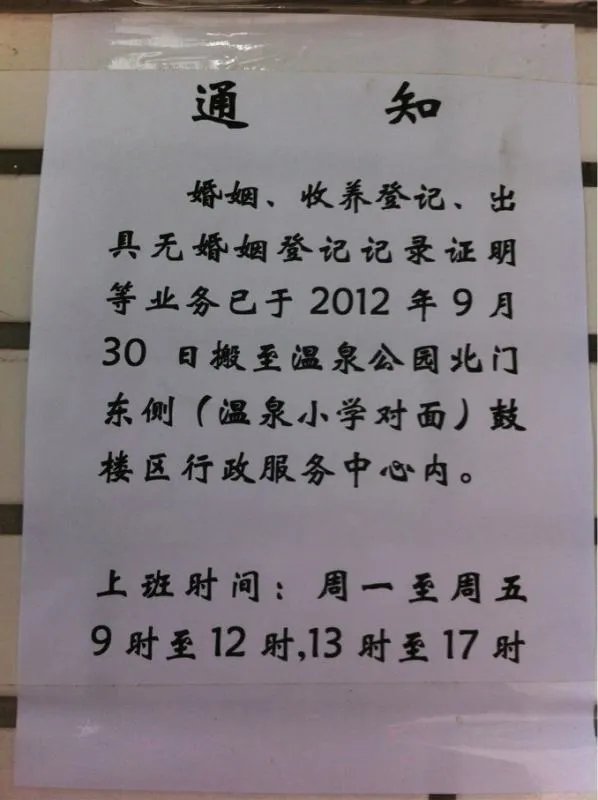 通 知
婚姻、收养登记、出
具无婚姻登记记录证明
等业务已于 2012 年 9 月
30 日搬至温泉公园北门
东侧（温泉小学对面）鼓
楼区行政服务中心内。
上班时间：周一至周五
9 时至 12 时,13 时至 17 时